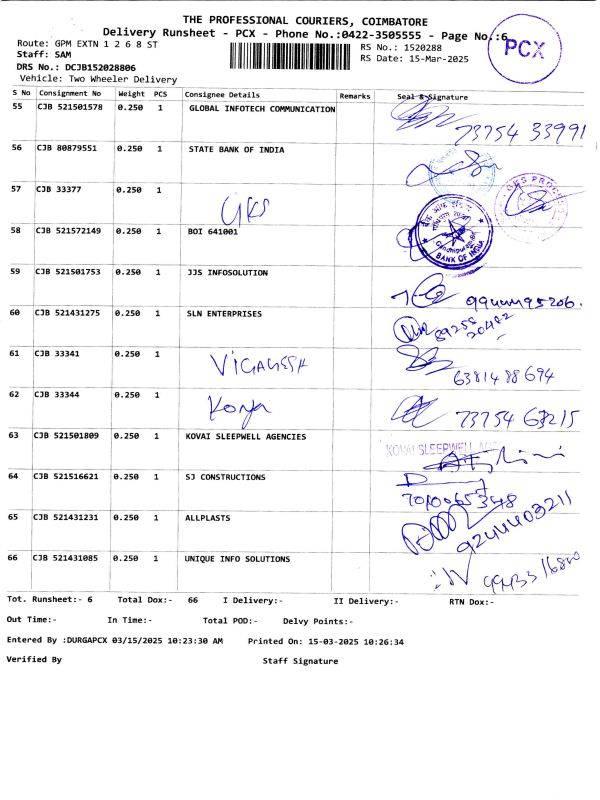 THE PROFESSIONAL COURIERS, COIMBATORE
Delivery Runsheet - PCX - Phone No.:0422-3505555 - Page No.:6
PCX
Route: GPM EXTN 1 2 6 8 ST
RS No.: 1520288
Staff: SAM
RS Date: 15-Mar-2025
DRS No.: DCJB152028806
Vehicle: Two Wheeler Delivery
S No Consignment No Weight PCS Consignee Details Remarks Seal & Signature
55 CJB 521501578 0.250 1 GLOBAL INFOTECH COMMUNICATION
73754 33991
56 CJB 80879551 0.250 1 STATE BANK OF INDIA
57 CJB 33377 0.250 1
GKS
58 CJB 521572149 0.250 1 BOI 641001
BANK OF INDIA
59 CJB 521501753 0.250 1 JJS INFOSOLUTION
60 CJB 521431275 0.250 1 SLN ENTERPRISES
89258
20482
61 CJB 33341 0.250 1
6381488694
62 CJB 33344 0.250 1
73754 63215
63 CJB 521501809 0.250 1 KOVAI SLEEPWELL AGENCIES
KOVAI SLEEPWELL
64 CJB 521516621 0.250 1 SJ CONSTRUCTIONS
65 CJB 521431231 0.250 1 ALLPLASTS
66 CJB 521431085 0.250 1 UNIQUE INFO SOLUTIONS
Tot. Runsheet:- 6 Total Dox:- 66 I Delivery:- II Delivery:- RTN Dox:-
Out Time:- In Time:- Total POD:- Delvy Points:-
Entered By :DURGAPCX 03/15/2025 10:23:30 AM Printed On: 15-03-2025 10:26:34
Verified By Staff Signature